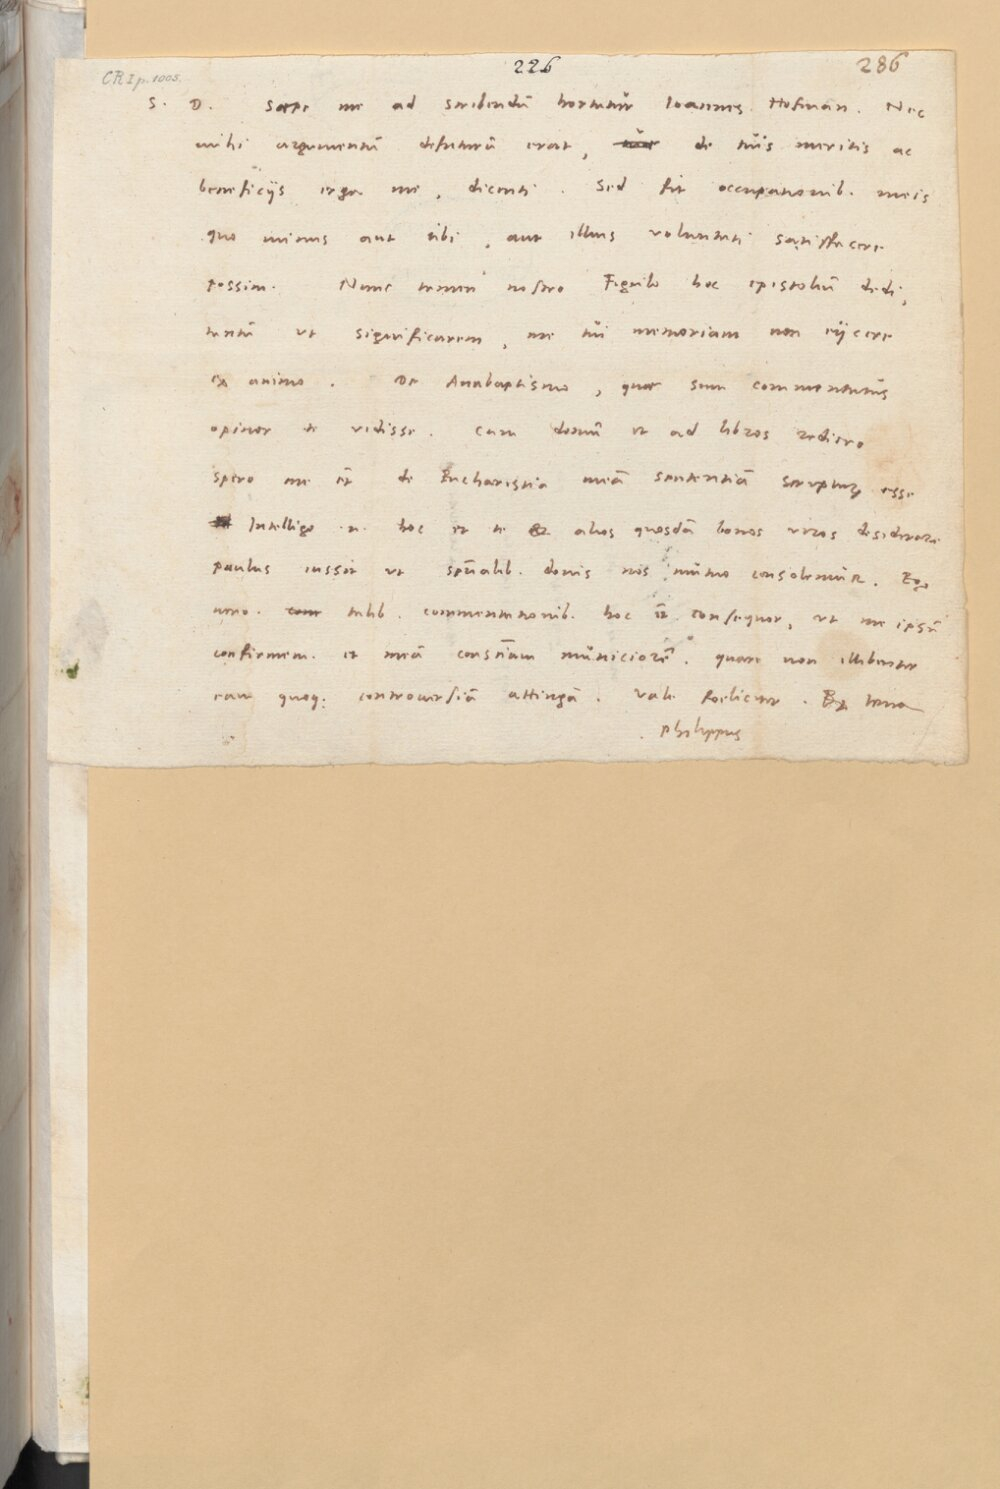 CR I p. 1005.
226
286
S. D. Saepe me ad scribendū hortatur Ioannes Hofman. Nec
mihi argumentū defuturū erat, de tuis meritis ac
beneficijs erga me, dicenti. Sed fit occupationib. meis
quo minus aut tibi, aut illius voluntati satisfacere
possim. Nunc tamen nostro Figulo hoc epistoliū dedi,
tantū vt significarem, me tui memoriam non eijcere
ex animo. De Anabaptismo, quae sum commentatus
opinor te vidisse. Cum domū et ad libros rediero
spero me et̄ de Eucharistia meā sententiā scripturū esse
Intelligo .n. hoc et te et alios quosdā bonos viros desiderare
paulus iussit vt sp̄ualib. donis nos mutuo consolemur. Ego
uero. talib. commentationib. hoc et̄ consequor, vt me ipsū
confirmem. et meā consc̄iam munitiorē. quare non illibenter
eam quoq; controuersiā attingā. Vale foeliciter. Ex Iena
philippus